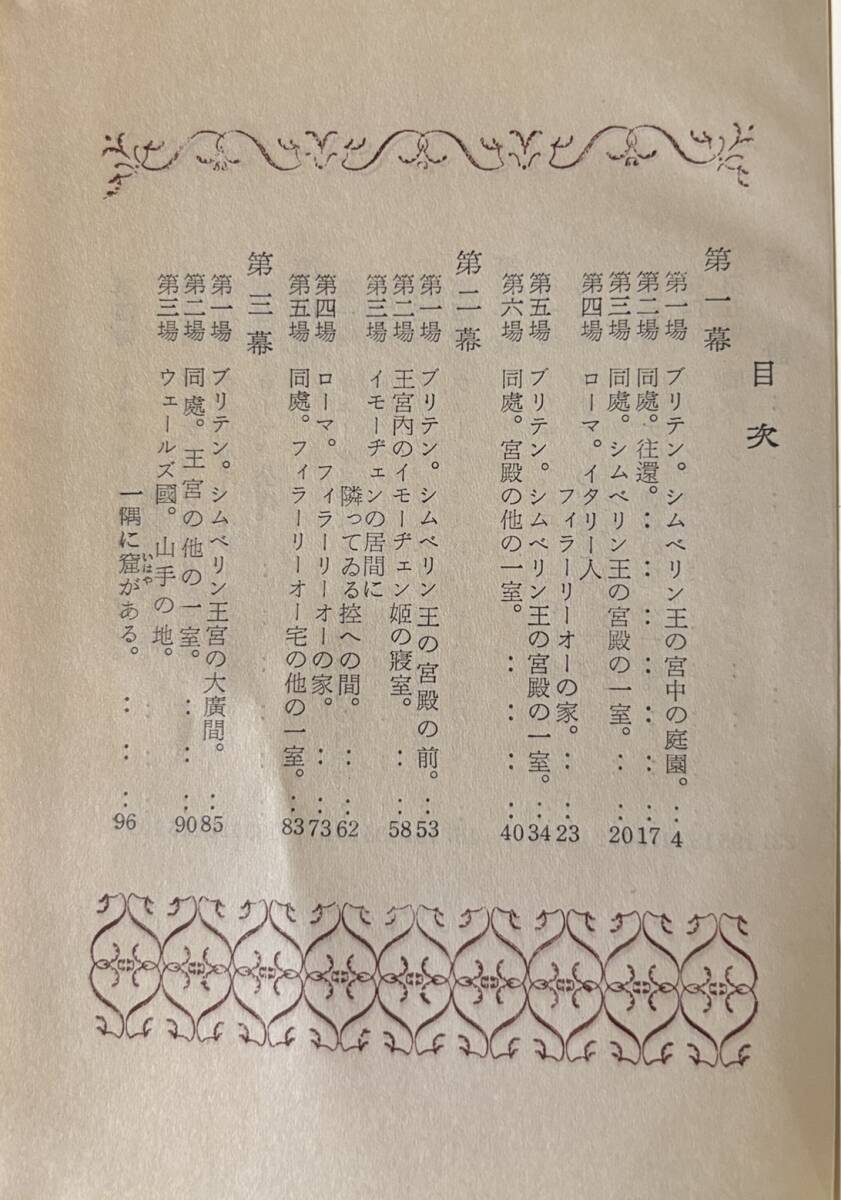 目次
第一幕
第一場 ブリテン。シムベリン王の宮中の庭園。‥4
第二場 同處。往還。‥‥‥‥‥‥17
第三場 同處。シムベリン王の宮殿の一室。‥‥20
第四場 ローマ。イタリー人
フィラーリーオーの家。‥‥23
第五場 ブリテン。シムベリン王の宮殿の一室。‥34
第六場 同處。宮殿の他の一室。‥‥‥‥40
第二幕
第一場 ブリテン。シムベリン王の宮殿の前。‥53
第二場 王宮内のイモーヂェン姫の寢室。‥‥58
第三場 イモーヂェンの居間に
隣ってゐる控への間。‥‥62
第四場 ローマ。フィラーリーオーの家。‥‥73
第五場 同處。フィラーリーオー宅の他の一室。‥83
第三幕
第一場 ブリテン。シムベリン王宮の大廣間。‥85
第二場 同處。王宮の他の一室。‥‥‥90
第三場 ウェールズ國。山手の地。
一隅に窟いはやがある。‥‥‥96